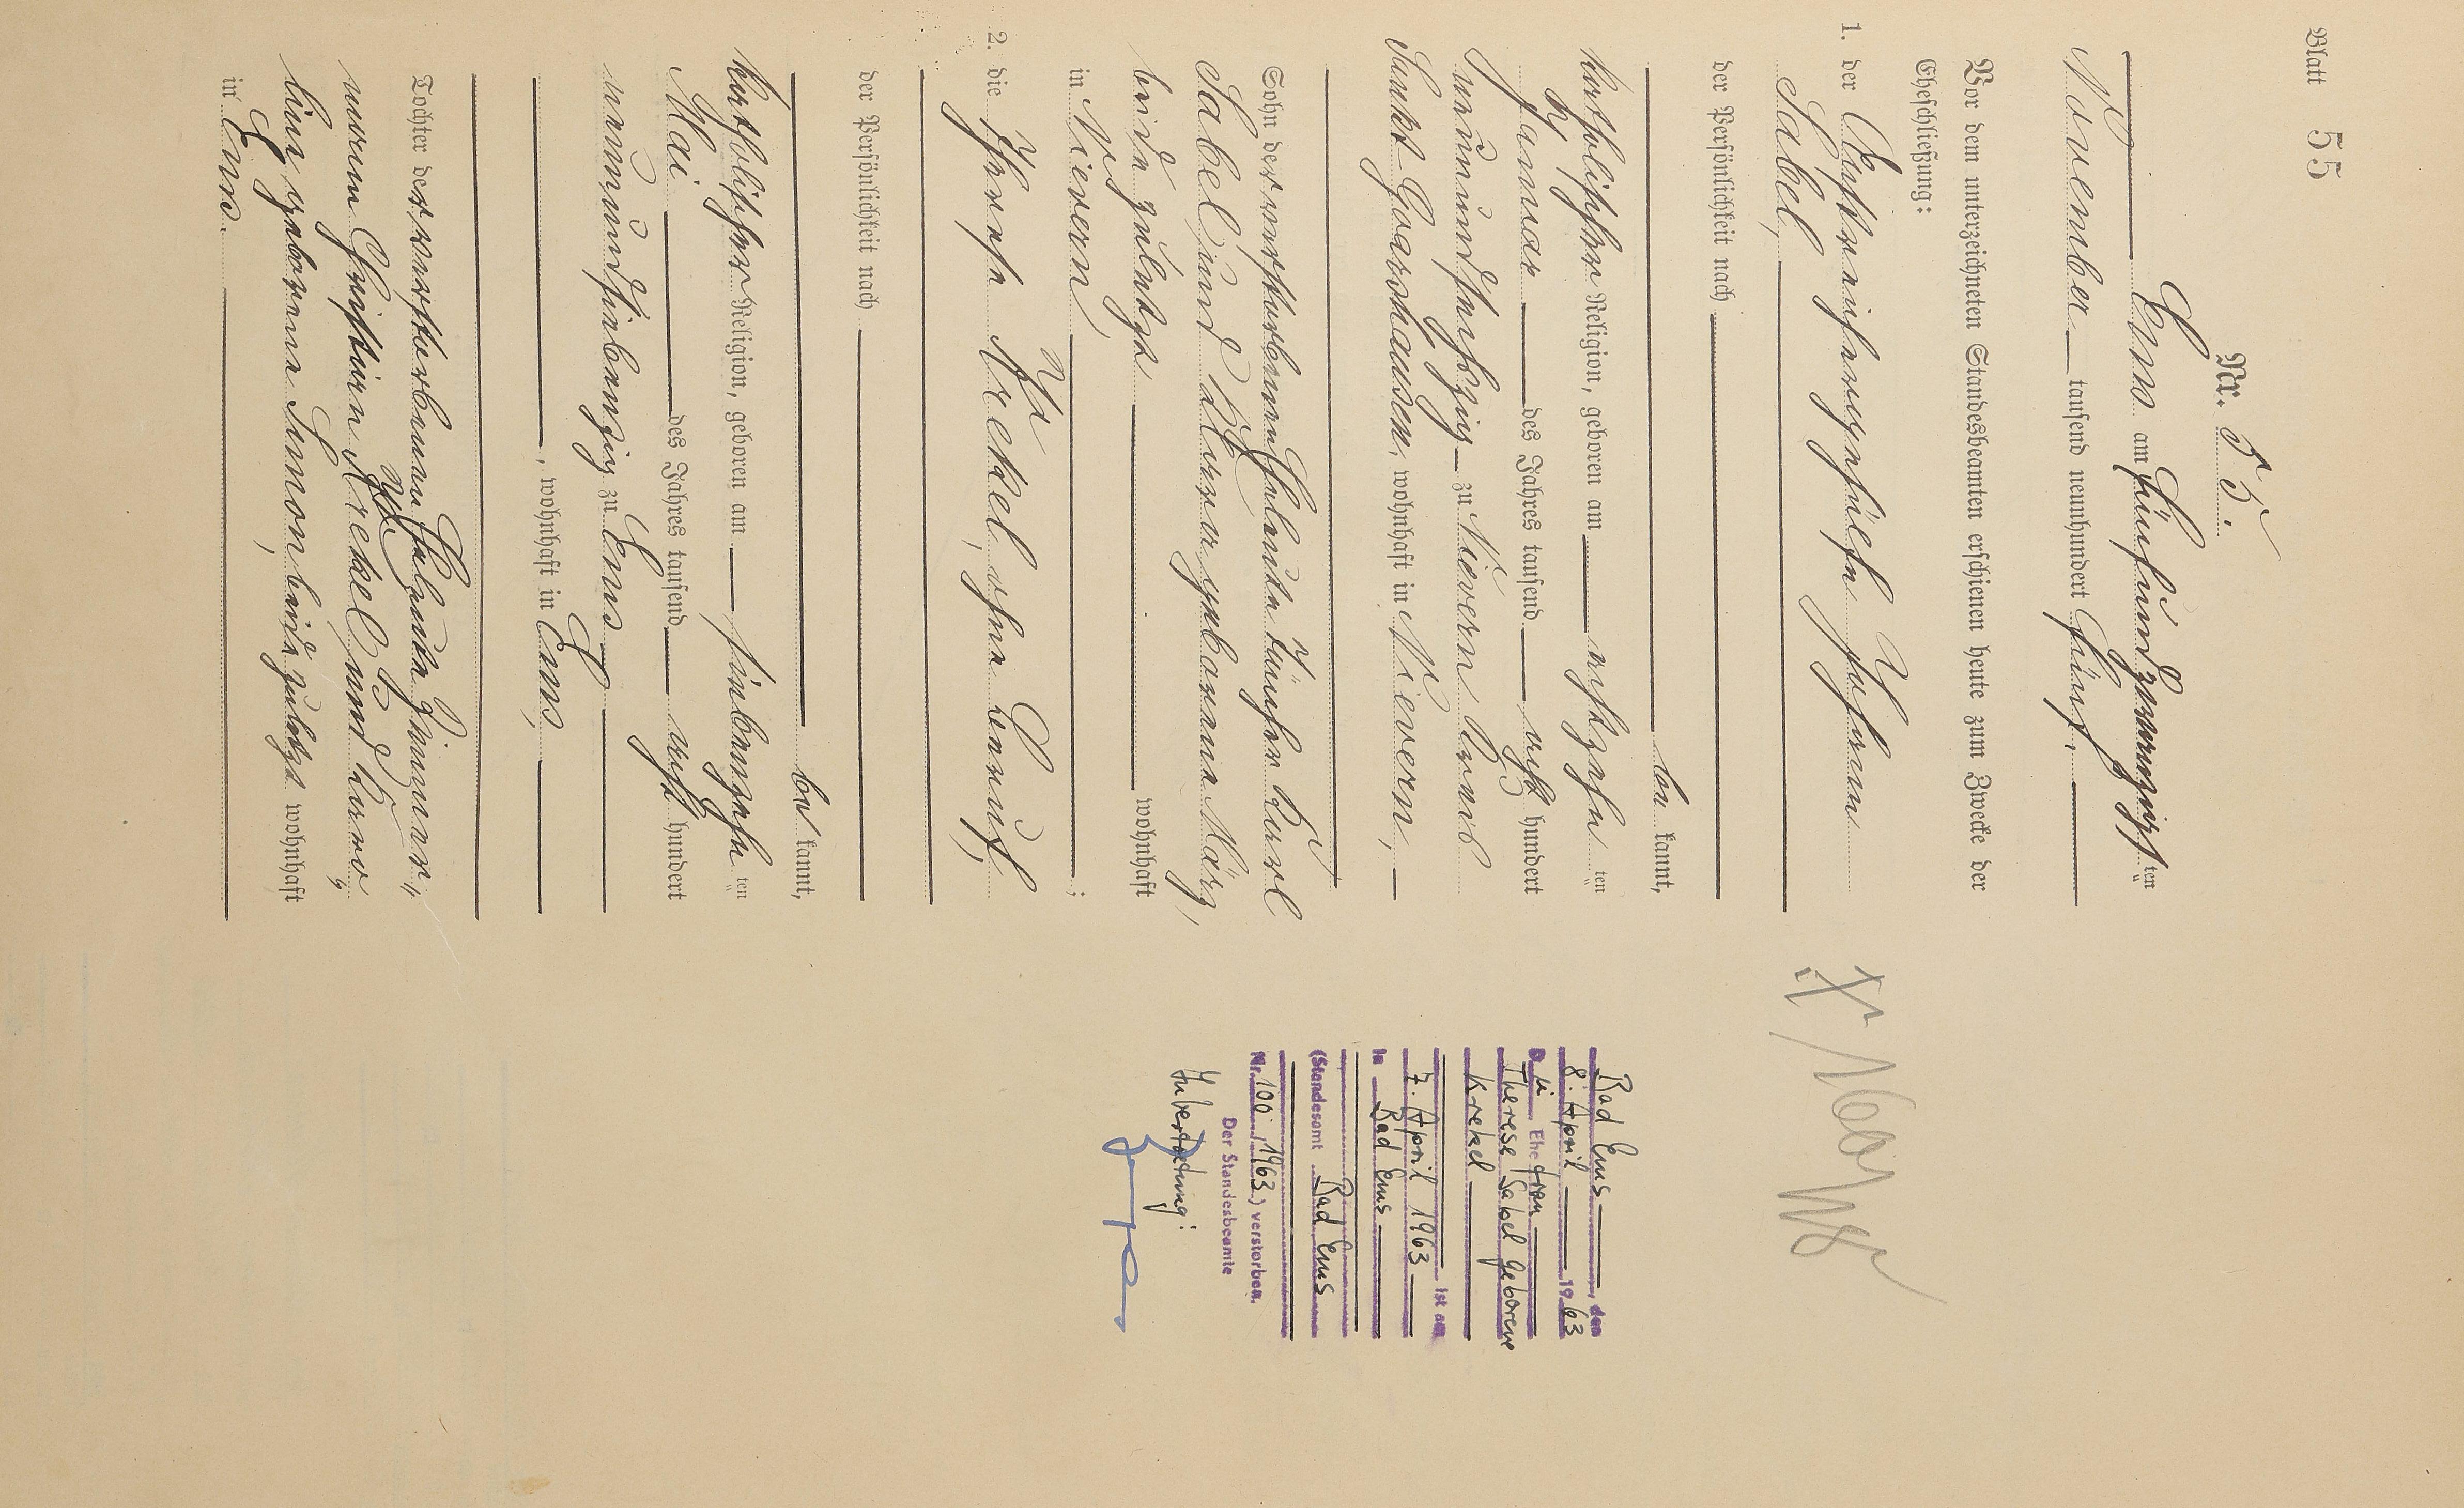 Blatt 55
Nr. 55.
Ems am fünfundzwanzigsten
November tausend neunhundert fünf.
Vor dem unterzeichneten Standesbeamten erschienen heute zum Zwecke der
Eheschließung:
1. der Johann
Sabel,
der Persönlichkeit nach
be kannt,
katholischer Religion, geboren am achtzehn ten
Januar des Jahres tausend acht hundert
neunundsechszig zu Nievern Kreis
Sankt Goarshausen, wohnhaft in Nievern,
Sohn der verstorbenen Eheleute Karl
Sabel und geborene März,
beide zuletzt wohnhaft
in Nievern;
2. die Therese Krekel, ohne Beruf,
der Persönlichkeit nach
be kannt,
katholischer Religion, geboren am siebenzehn ten
Mai des Jahres tausend acht hundert
neunundsiebenzig zu Ems
, wohnhaft in Ems,
Tochter der verstorbenen Eheleute Zimmer-
mann Krekel und Karo-
line geborene Simon beide zuletzt wohnhaft
in Ems.
Bad Ems, den
8. April 1963
Die Ehefrau
Therese Sabel geborene
Krekel
ist am
7. April 1963
in Bad Ems
(Standesamt Bad Ems
Nr. 100/1963) verstorben.
Der Standesbeamte
In Vertretung: